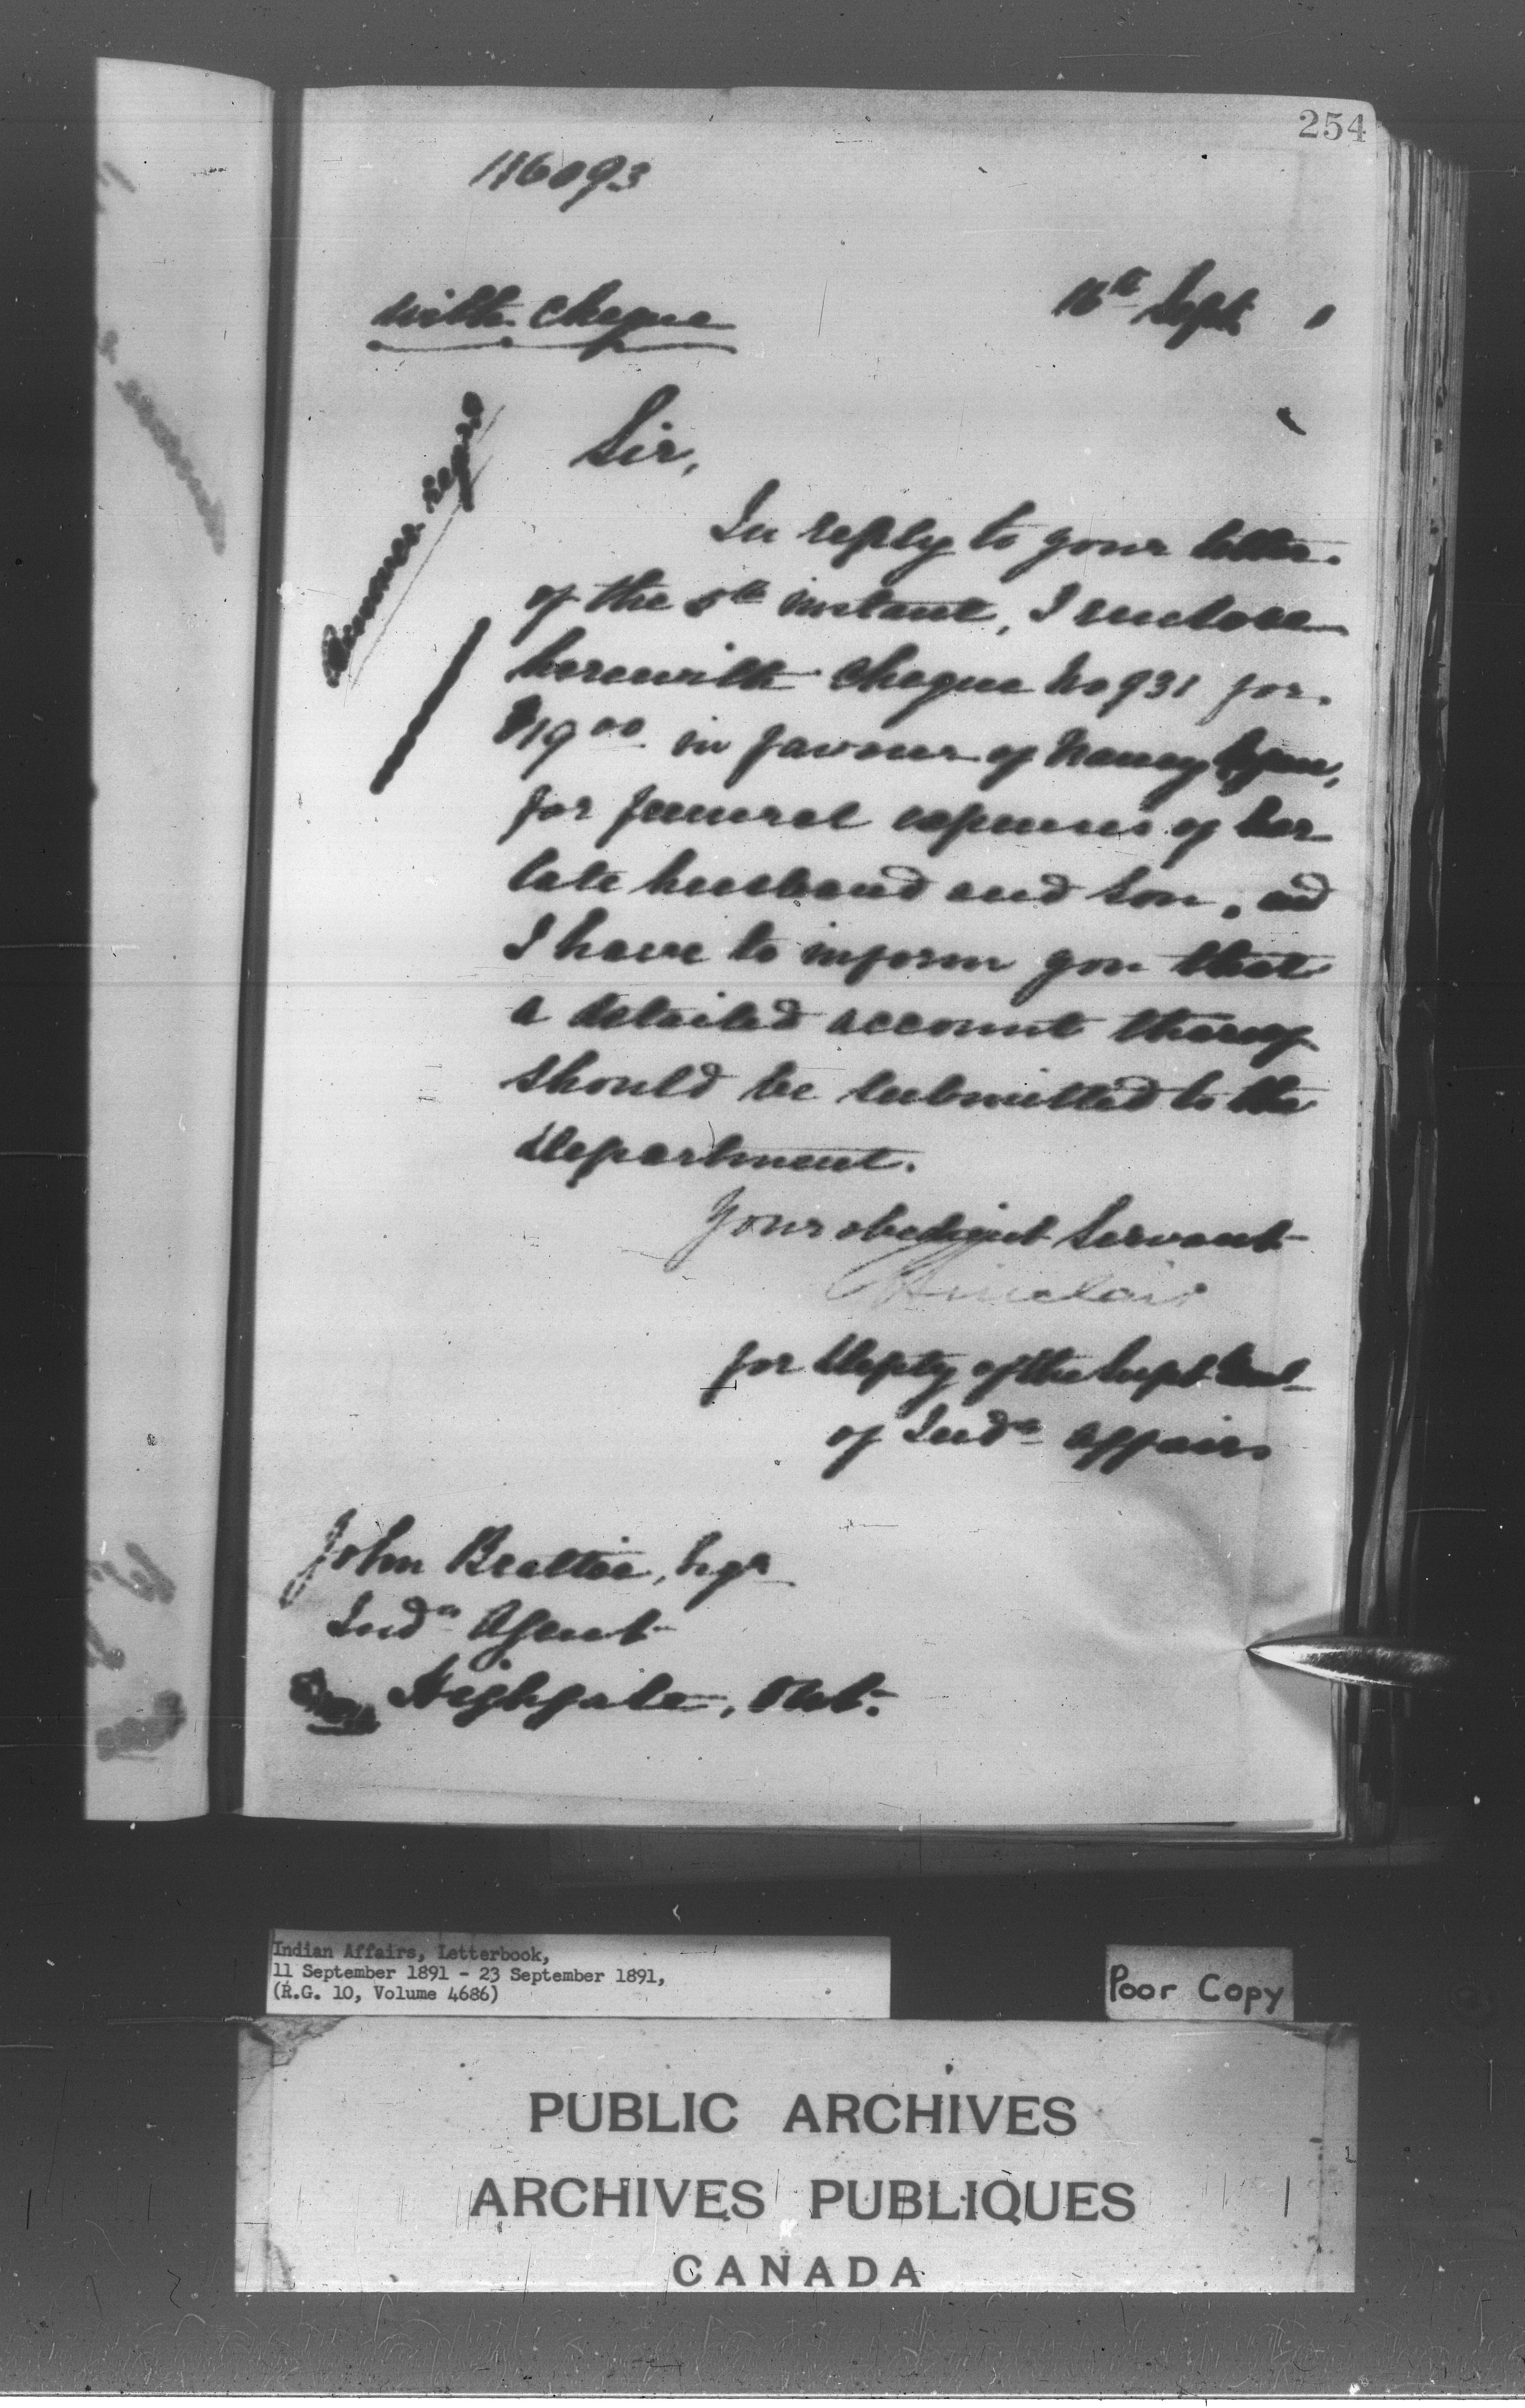 254
116093
with cheque
16th Sept 1
Sir,
In reply to your letter
of the 5th instant, I enclose
herewith cheque No 931 for
$19.00 in favour of Nancy
for funeral expenses of her
late husband and son, and
I have to inform you that
a detailed account thereof
should be submitted to the
Department.
Your obedient Servant
Sinclair
for Depty of the Supt Genl
of Indn Affairs
John Beattie, Esqr
Indn Agent
Highgate, Ont.
Indian Affairs, Letterbook,
11 September 1891 - 23 September 1891,
(R.G. 10, Volume 4686)
Poor Copy
PUBLIC ARCHIVES
ARCHIVES PUBLIQUES
CANADA